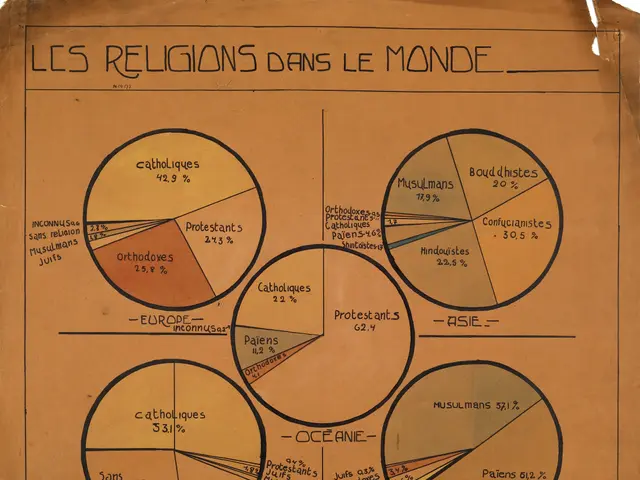 LES RELIGIONS DANS LE MONDE
Catholiques
42,9 %
Protestants
Orthodoxes
25,8 %
INCONNUS
sans religion
Musulmans
Juifs
2,8 %
1,8 %
—EUROPE—
Musulmans
17,9 %
Bouddhistes
20 %
Confucianistes
30,5 %
Hindouistes
22,5 %
Orthodoxes
Protestants
Catholiques
Païens 4,6%
Shintoistes
—ASIE—
Catholiques
22 %
Protestants
62,4
Païens
11,2 %
Orthodoxes
4,1
inconnus
—OCÉANIE—
Catholiques
53,1 %
Sans
Protestants
Juifs
MUSULMANS 37,1 %
Païens 51,2 %
Juifs 0,3%
3,4 %